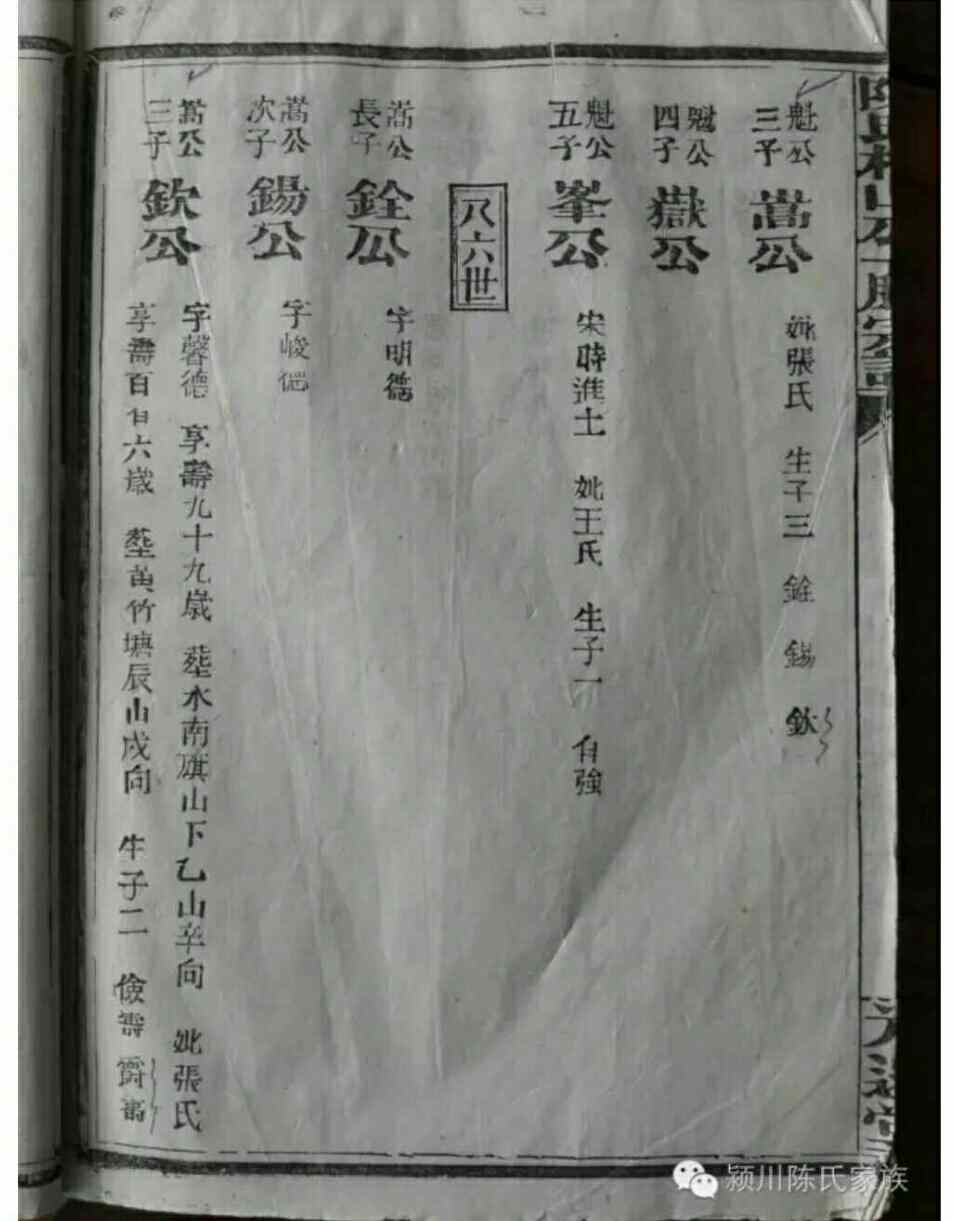 魁公三子 嵩公 妣張氏 生子三 銓 錫 欽
魁公四子 嶽公
魁公五子 峯公 宋時進士 妣王氏 生子一 自強
八六世
嵩公長子 銓公 字明德
嵩公次子 錫公 字峻德
嵩公三子 欽公 字馨德 享壽九十九歲 塟水南旗山下乙山辛向 妣張氏
享壽百廿六歲 塟黃竹塘辰山戌向 生子二 儉壽 爵壽
颍川陈氏家族